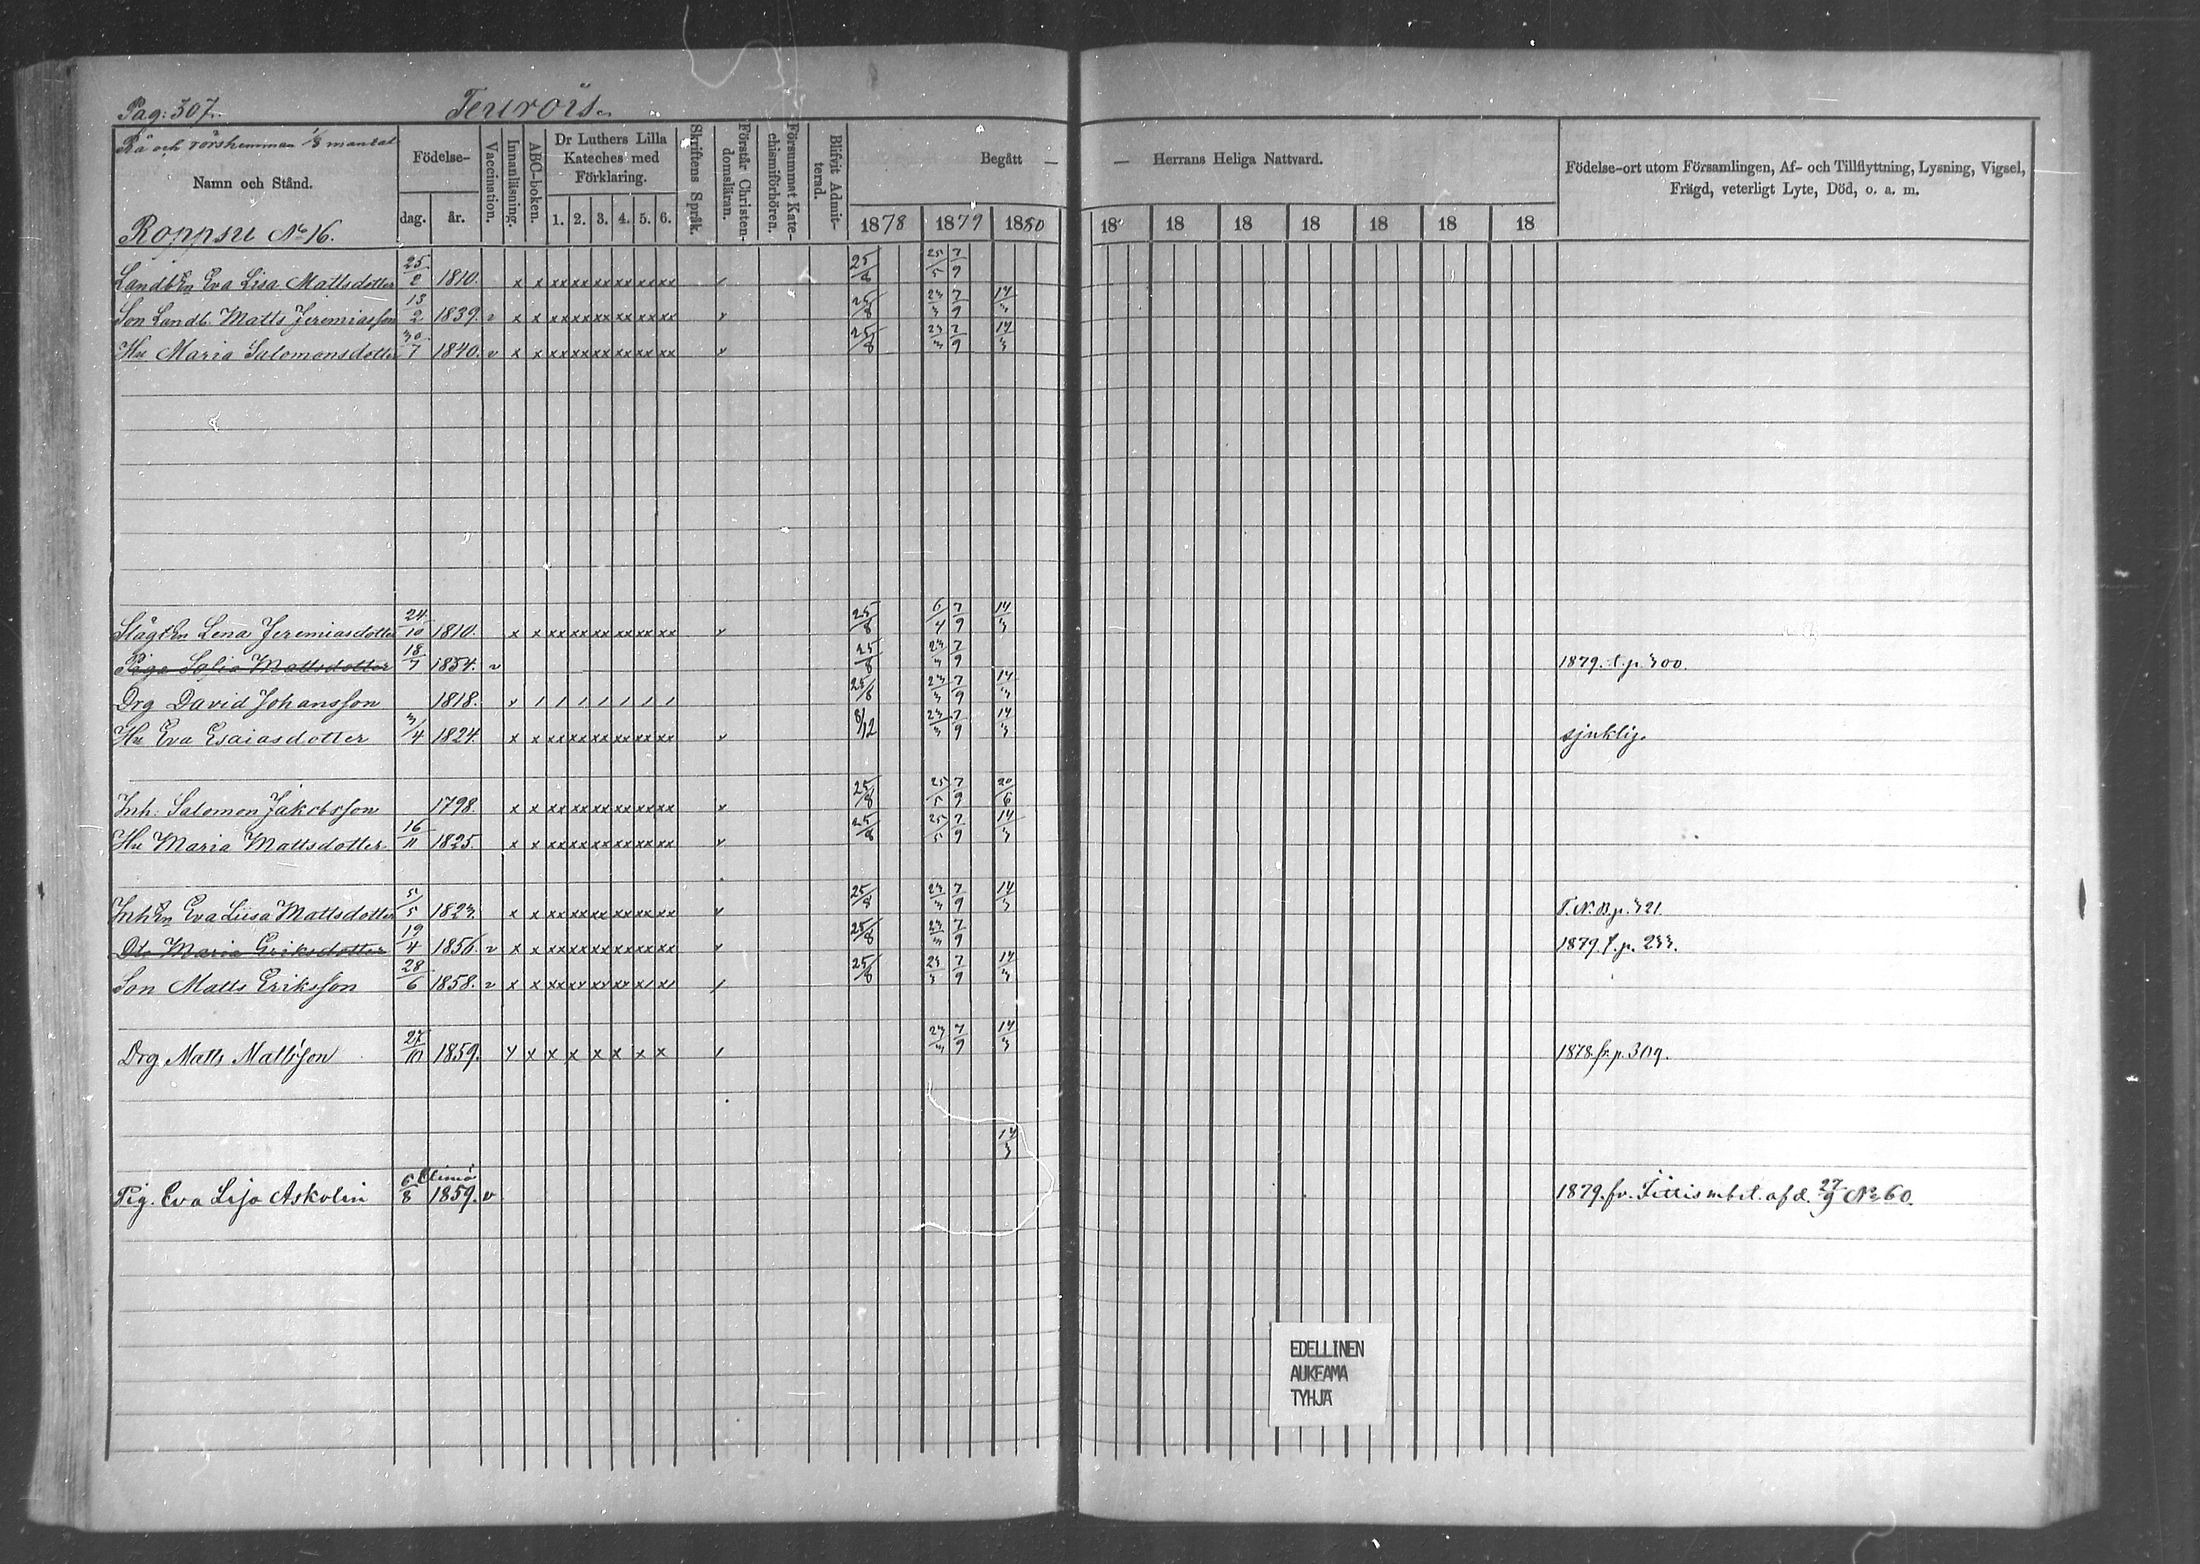 Pag: 307. Teurois.
Rå och rörshemman 1/8 mantal
Namn och Stånd.
Roppsu No 16.
Födelse-
dag. år.
Vaccination.
Innanläsning.
ABC-boken.
Dr Luthers Lilla
Kateches med
Förklaring.
1. 2. 3. 4. 5. 6.
Skriftens Språk.
Förstår Christen-
domsläran.
Försummat Kate-
chismiförhören.
Blifvit Admit-
terad.
Begått — — Herrans Heliga Nattvard.
1878 1879 1880 18 18 18 18 18 18 18
Födelse-ort utom Församlingen, Af- och Tillflyttning, Lysning, Vigsel,
Frägd, veterligt Lyte, Död, o. a. m.
Landb:En Eva Lisa Mattsdotter 25/2 1810. x x xx xx xx xx xx xx 25/8 25/5 7/9
Son Landb. Matts Jeremiasson 13/2 1839. v x x xx xx xx xx xx xx v 25/8 23/3 7/9 14/3
Hu Maria Salomonsdotter 30/7 1840. v x x xx xx xx xx xx xx v 25/8 23/3 7/9 14/3
Slägt:En Lena Jeremiasdotter 24/10 1810. x x xx xx xx xx xx xx v 25/8 6/4 7/9 14/3
Piga Sofia Mattsdotter 18/7 1854. v 25/8 23/3 7/9 1879. t. p. 300.
Drg David Johansson 1818. v / / / / / / / 25/8 23/3 7/9 14/3
Hu Eva Esaiasdotter 3/4 1824. x x xx xx xx xx xx xx v 8/12 23/3 7/9 14/3 sjuklig.
Inh. Salomon Jakobsson 1798. x x xx xx xx xx xx xx v 25/8 25/5 7/9 20/6
Hu Maria Mattsdotter 16/11 1825. x x xx xx xx xx xx xx v 25/8 25/5 7/9 14/3
Inh:En Eva Liisa Mattsdotter 5/5 1823. x x xx xx xx xx xx xx v 25/8 23/3 7/9 14/3 T. N. B. p. 321
Dtr Maria Eriksdotter 19/4 1856. v x x xx xx xx xx xx xx v 25/8 23/3 7/9 1879. t. p. 233.
Son Matts Eriksson 28/6 1858. v x x xx xx xx xx xx xx / 25/8 23/3 7/9 14/3
Drg Matts Mattsson 27/10 1859. v x x x x x x x / 23/3 7/9 14/3 1878. fr. p. 309.
14/3
Elimä
Pig. Eva Lisa Askolin 6/8 1859. v 1879. fr. Iittis m. bet. af d. 27/9 No 60.
EDELLINEN
AUKEAMA
TYHJÄ